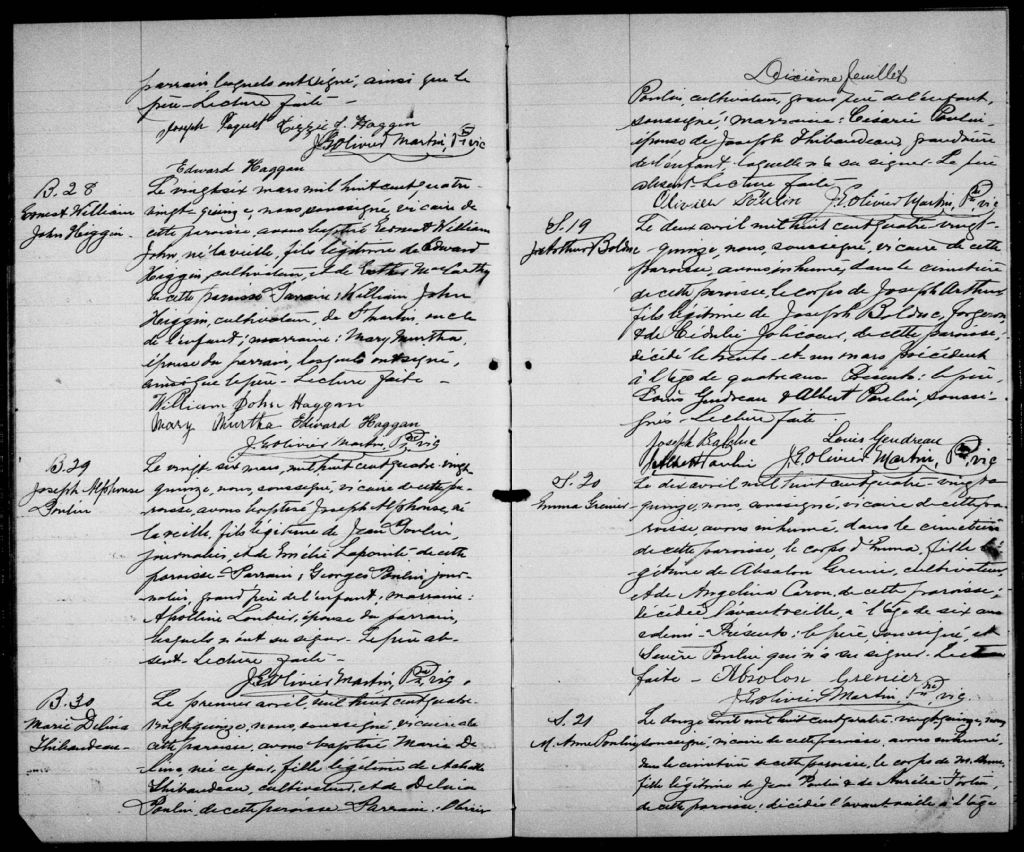 parrain lesquels ont signé, ainsi que le
père - Lecture faite -
Joseph Paquet Lizzie S. Haggan
J.E. Olivier Martin, Ptre vic
Edward Haggan
B. 28
Ernest William
John Higgin -
Le vingt six mars mil huit cent quatre-
vingt quinze, nous soussigné, vicaire de
cette paroisse, avons baptisé Ernest William
John, né la veille, fils légitime de Edward
Higgin, cultivateur, et de Esther McCarthy
de cette paroisse Parrain: William John
Higgin, cultivateur, de St Martin, oncle
de l'enfant; marraine: Mary Murtha,
épouse du parrain, lesquels ont signé,
ainsi que le père - Lecture faite -
William John Haggan
Mary Murtha Edward Haggan
J.E. Olivier Martin, Ptre vic
B. 29
Joseph Alphonse
Poulin
Le vingt six mars, mil huit cent quatre-vingt
quinze, nous, soussigné, vicaire de cette pa-
roisse, avons baptisé Joseph Alphonse, né
la veille, fils légitime de Jean Poulin,
journalier, et de Emélie Lapointe de cette
paroisse - Parrain; Georges Poulin, jour-
nalier, grand père de l'enfant; marraine:
Apolline Loubier, épouse du parrain,
lesquels n'ont su signer. Le père ab-
sent - Lecture faite -
J.E. Olivier Martin, Ptre vic.
B. 30
Marie Delina
Thibaudeau -
Le premier avril, mil huit cent quatre-
vingt quinze, nous, soussigné, vicaire de
cette paroisse, avons baptisé Marie De
lina, née ce jour, fille légitime de
Thibaudeau, cultivateur, et de Delvina
Poulin, de cette paroisse Parrain: Olivier
Dixième feuillet
Poulin, cultivateur, grand père de l'enfant,
soussigné; marraine: Césarie Poulin
épouse de Joseph Thibaudeau, grand'mère
de l'enfant, laquelle n'a su signer. Le père
absent - Lecture faite -
Olivier Poulin J.E. Olivier Martin, Ptre vic
S. 19
Jos Arthur Bolduc
Le deux avril mil huit cent quatre vingt-
quinze, nous, soussigné, vicaire de cette
paroisse, avons inhumé, dans le cimetière
de cette paroisse, le corps de Joseph Arthur
fils légitime de Joseph Bolduc, forgeron
& de Cédulie Jolicoeur, de cette paroisse,
décédé le trente-et-un mars précédent
à l'âge de quatre ans Présents: le père,
Louis Gendreau & Albert Poulin, soussi-
gnés - Lecture faite -
Joseph Bolduc Louis Gendreau
Albert Poulin J.E. Olivier Martin, Ptre, vic
S. 20
Emma Grenier
Le dix avril mil huit cent quatre vingt-
quinze, nous, soussigné, vicaire de cette pa-
roisse, avons inhumé, dans le cimetière
de cette paroisse, le corps d'Emma, fille lé-
gitime de Absalon Grenier, cultivateur,
& de Angelina Caron, de cette paroisse;
décédée l'avant veille, à l'âge de six ans
& demi - Présents: le père, soussigné, et
Sévère Poulin qui n'a su signer. Lecture
faite - Absolon Grenier
J.E. Olivier Martin, Ptre, vic.
S. 21
M. Anne Poulin
Le douze avril mil huit cent quatre vingt quinze, nous
soussigné, vicaire de cette paroisse, avons inhumé,
dans le cimetière de cette paroisse, le corps de M. Anne,
fille légitime de Jean Poulin & de Aurélie Fortin,
de cette paroisse; décédée l'avant-veille à l'âge